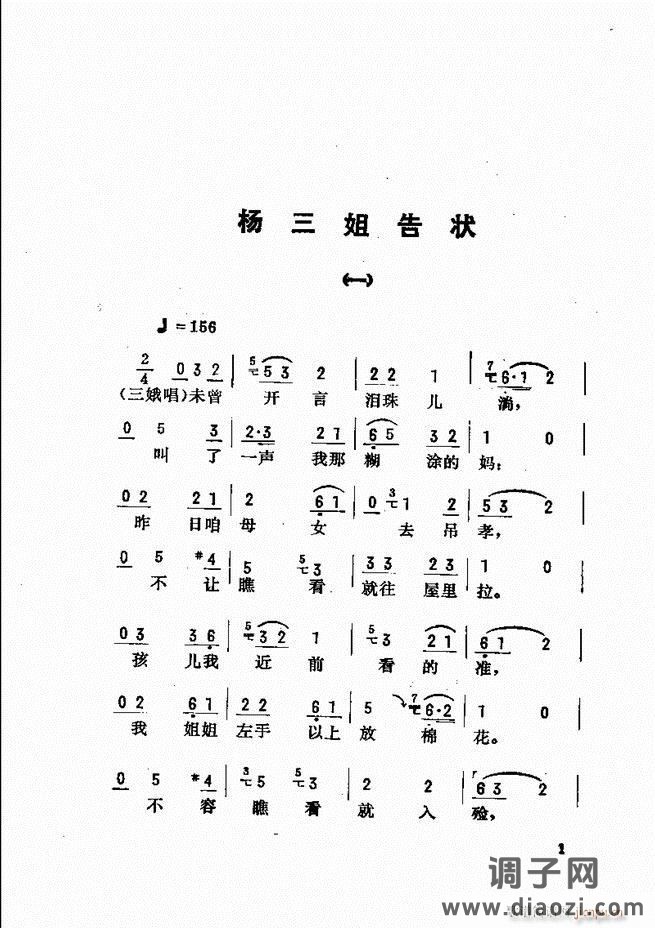 杨三姐告状
(一)
♩=156
2/4 0 3 2 | 5 5 3 2 | 2 2 1 | 7 6·1 2 |
(三娥唱)未曾 开 言 泪珠 儿 淌,
0 5 3 | 2·3 2 1 | 6 5 2 4 | 1 0 |
叫 了 一声 我那 糊 涂的 妈;
0 2 2 1 | 2 6 1 | 0 3 1 2 | 5 3 2 |
昨 日咱 母 女 去 吊 孝,
0 5 #4 | 5 5 3 | 3 3 2 3 | 1 0 |
不 让 瞧 看 就往 屋里 拉。
0 3 3 6 | 5 3 2 1 | 5 3 2 2 | 6 1 2 |
孩 儿我 近 前 看 的 准,
0 2 6 1 | 2 2 6 1 | 5 7 6·2 | 1 0 |
我 姐姐 左手 以上 放 棉 花。
0 5 #4 | 3 5 5 3 | 2 2 | 6 3 2 |
不 容 瞧 看 就 入 殓,
1
调子网
www.diaozi.com